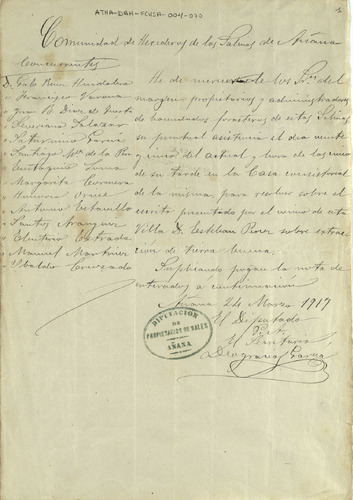 ATHA-DAH-FCUSA-004-070
1
Comunidad de Herederos de las Salinas de Añana
Concurrentes
D. Galo
" Francisco Varona
" Juan B. Diaz de
" Feliciana Salazar
" Saturnino García
" Santiago Mª de la
" Eustaquio
" Margarita
" Antonio Estavillo
" Santos Aranguiz
" Eleuterio Estrada
" Manuel Martinez
" Ubaldo Cruzado
He de merecer de los Sres del
margen propietarios y administradores
de hacendados forasteros de estas Salinas
su puntual asistencia el día veinte
y cinco del actual, y hora de las cinco
de su tarde en la Casa consistorial
de la misma, para resolver sobre el
escrito presentado por el vecino de esta
Villa D. Esteban sobre extrac-
ción de tierra buena.
Suplicando pongan la nota de
enterados a continuación
Añana 24 Marzo 1917
El Diputado
El Secretario
Deogracias García
DIPUTACION
DE
PROPIETARIOS DE SALES
AÑANA